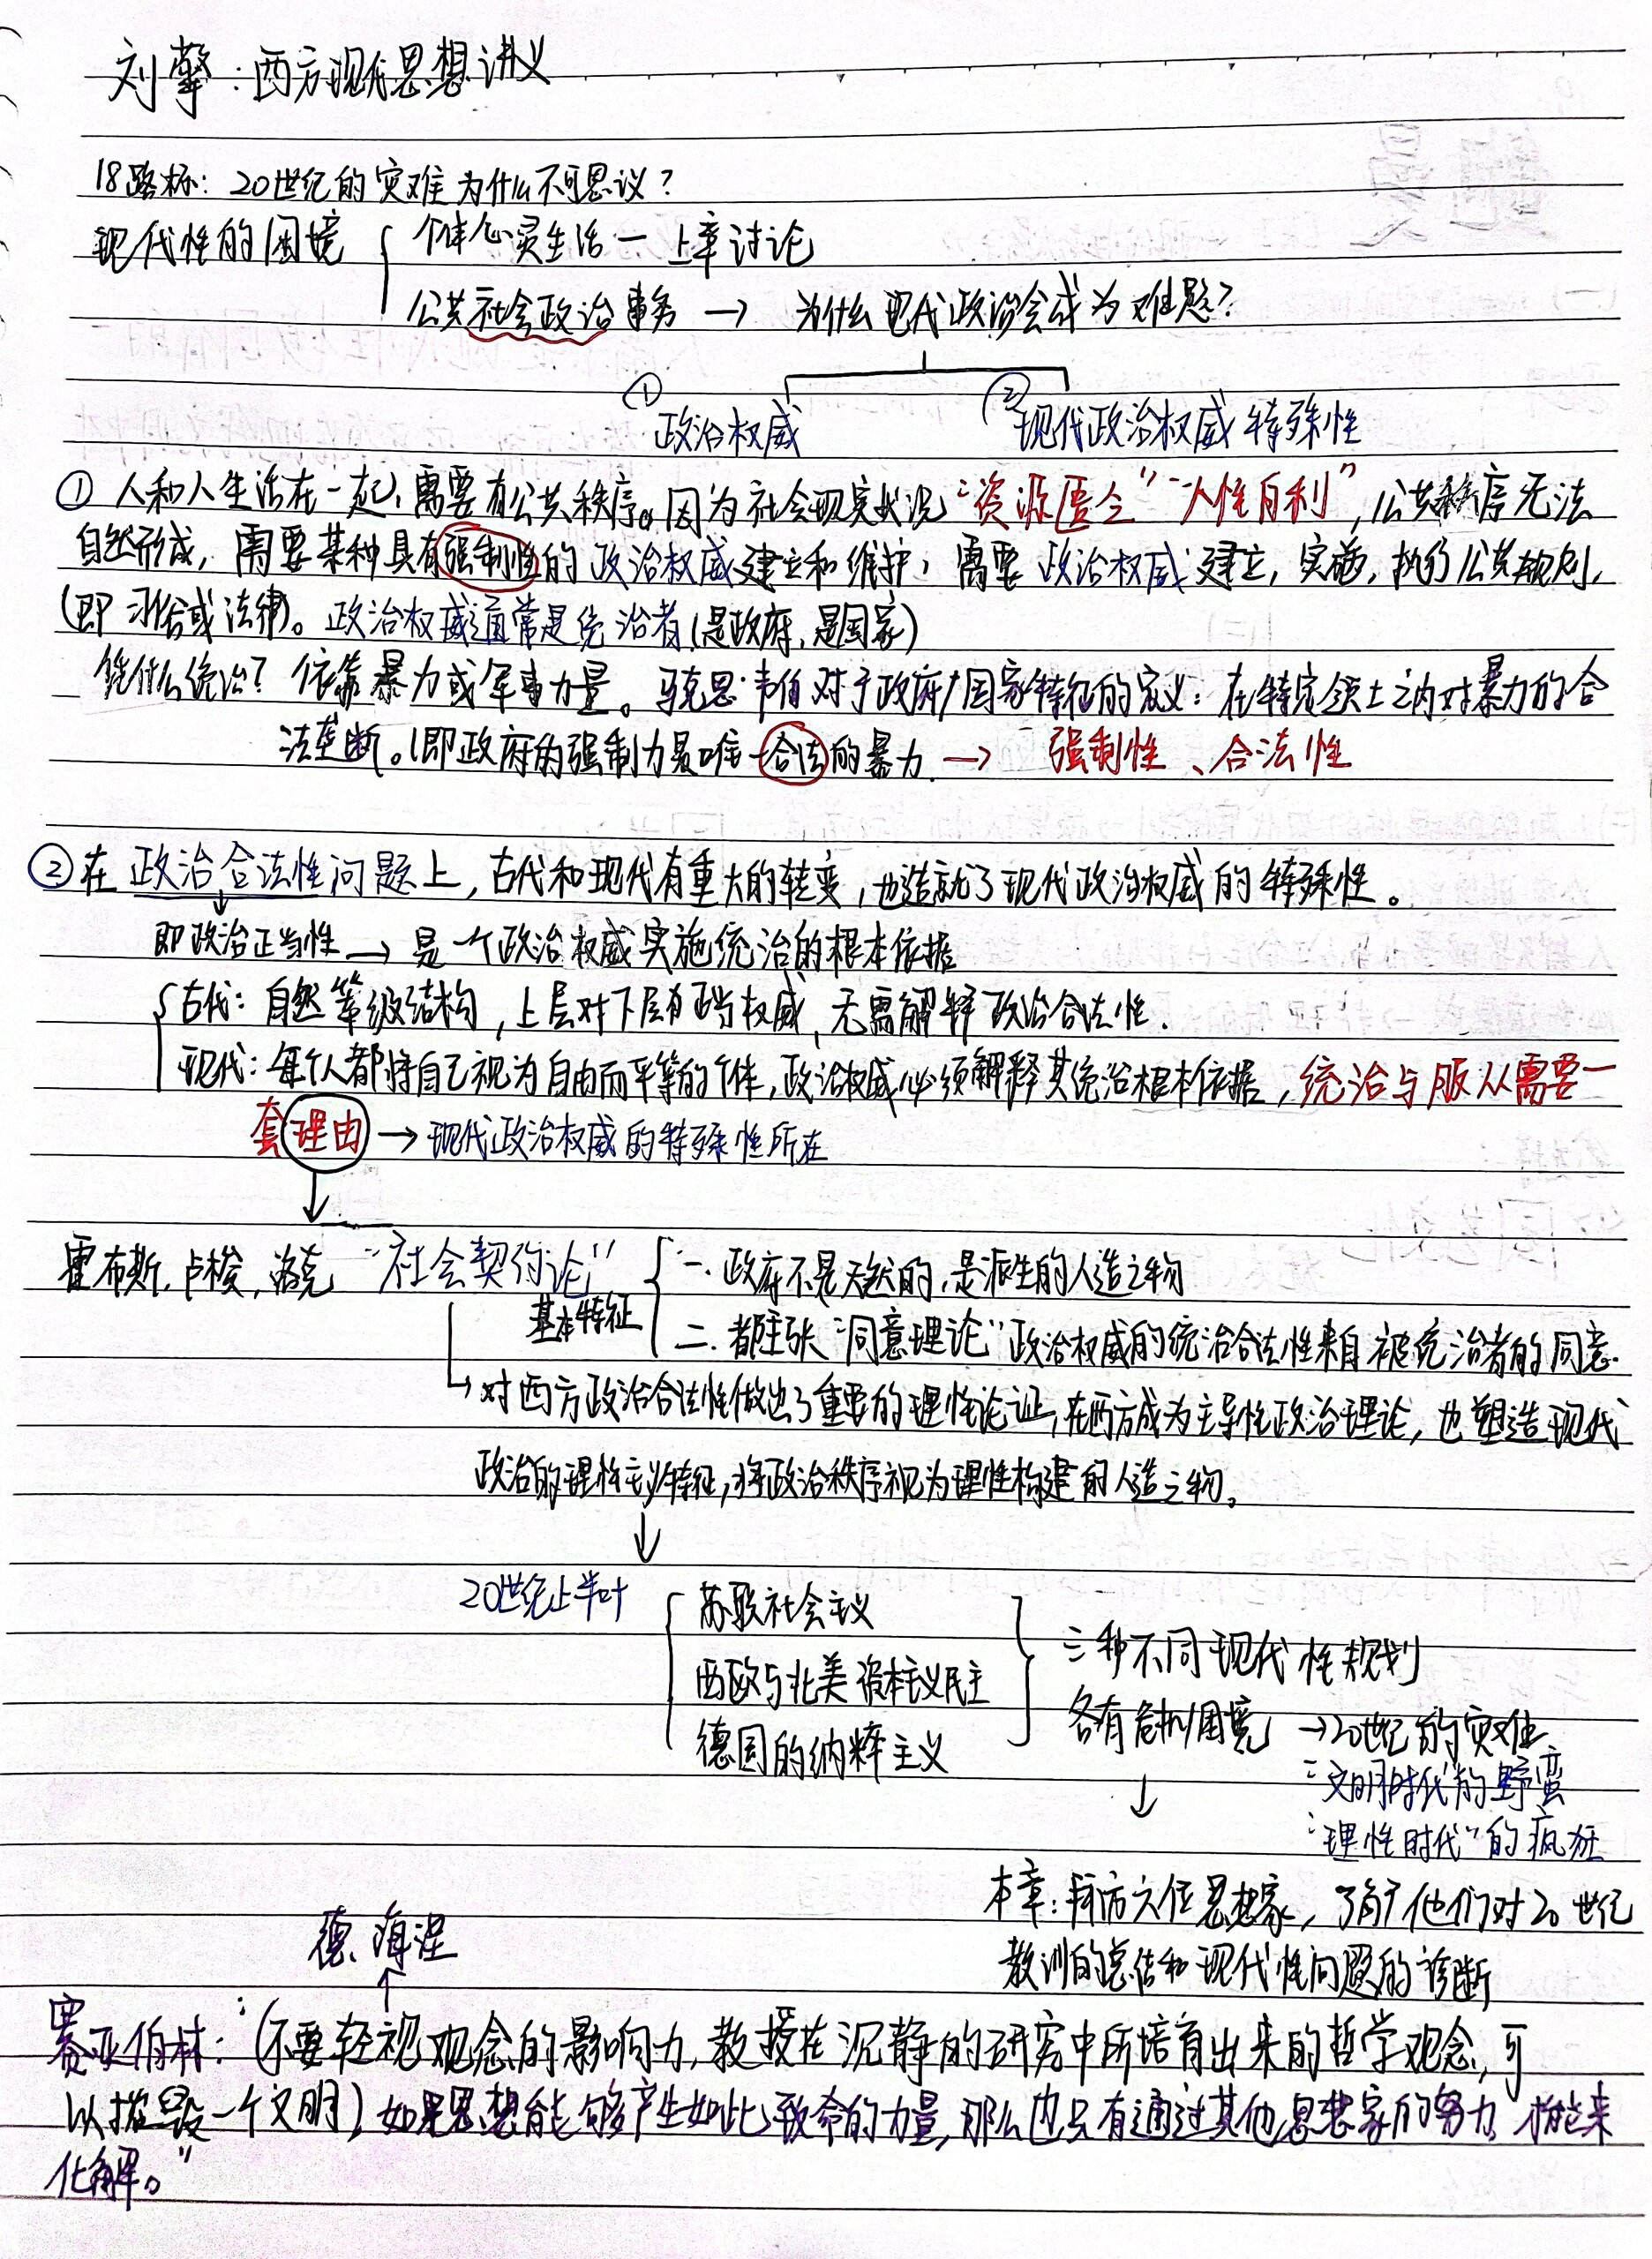 刘擎：西方现代思想讲义
18路标：20世纪的灾难为什么不可思议？
现代性的困境 { 个体心灵生活 — 上章讨论
公共社会政治事务 → 为什么现代政治会成为难题？
① 政治权威 ② 现代政治权威特殊性
① 人和人生活在一起，需要有公共秩序。因为社会现实状况“资源匮乏”“人性自利”，公共秩序无法
自然形成，需要某种具有强制性的政治权威建立和维护，需要政治权威建立，实施，执行公共规则，
（即习俗或法律）。政治权威通常是统治者（是政府，是国家）
凭什么统治？依靠暴力或军事力量。马克思·韦伯对于政府/国家特征的定义：在特定领土之内对暴力的合
法垄断。（即政府的强制力是唯一合法的暴力 → 强制性、合法性
② 在政治合法性问题上，古代和现代有重大的转变，也造就了现代政治权威的特殊性。
↓
即政治正当性 → 是一个政治权威实施统治的根本依据
{ 古代：自然等级结构，上层对下层有正当权威，无需解释政治合法性.
现代：每个人都将自己视为自由而平等的个体，政治权威必须解释其统治根本依据，统治与服从需要一
套理由 → 现代政治权威的特殊性所在
↓
霍布斯，卢梭，洛克 “社会契约论” { 一. 政府不是天然的，是派生的人造之物
基本特征
二. 都主张“同意理论”政治权威的统治合法性来自被统治者的同意.
↳ 对西方政治合法性做出了重要的理性论证，在西方成为主导性政治理论，也塑造现代
政治的理性主义特征，将政治秩序视为理性构建的人造之物。
↓
20世纪上半叶 { 苏联社会主义
西欧与北美资本主义民主
德国的纳粹主义 }
三种不同现代性规划
各有危机/困境 → 20世纪的灾难
“文明时代”的野蛮
↓
“理性时代”的疯狂
本章：拜访六位思想家，了解他们对20世纪
教训的总结和现代性问题的诊断
德. 海涅
↑
赛亚伯林：“（不要轻视观念的影响力，教授在沉静的研究中所培育出来的哲学观念，可
以摧毁一个文明）如果思想能够产生如此致命的力量，那么也只有通过其他思想家的努力才能来
化解。”